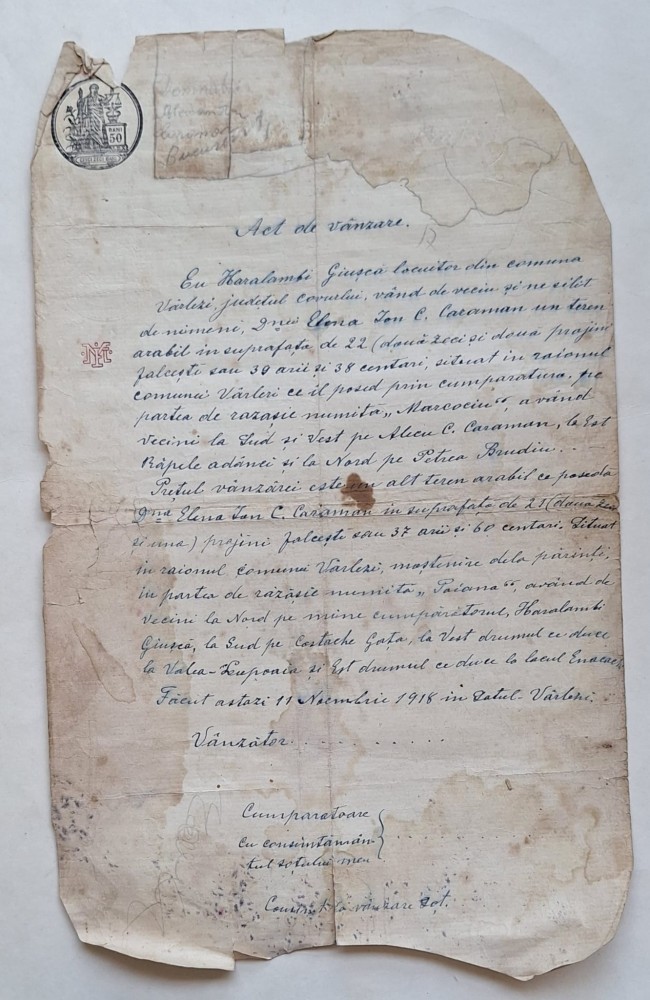 BANI
50
Domnul
București
Act de vânzare.
Eu Haralambi Giușcă locuitor din comuna
Vârlezi, județul covurlui, vând de veciu și ne silit
de nimeni, Dnei Elena Ion C. Caraman un teren
arabil in suprafața de 22 (două zeci și două prajini
fălcești sau 39 arii și 38 centari, situat in raionul
comunei Vârlezi ce il posed prin cumparatura, pe
partea de razașie numita „Marcociu“, având
vecini la Sud și Vest pe Alecu C. Caraman, la Est
Râpile adânci și la Nord pe Petrea Brudiu.
Prețul vânzărei este un alt teren arabil ce poseda
Dna Elena Ion C. Caraman in suprafața de 21 (două zeci
și una) projini fălcești sau 37 arii și 60 centari. Situat
in raionul comunei Vârlezi, moștenire dela părinți,
in partea de răzășie numita „Poiana“, având de
vecini la Nord pe mine cumpărătorul, Haralambi
Giușcă, la Sud pe Costache Gața, la Vest drumul ce duce
la Valea-Lupoaia și Est drumul ce duce la locul
Făcut astazi 11 Noembrie 1918 in Satul-Vârlezi.
Vânzător . . . . . . . . . .
Cumparatoare
cu consimtămân-
tul soțului meu
la vânzare Sot.